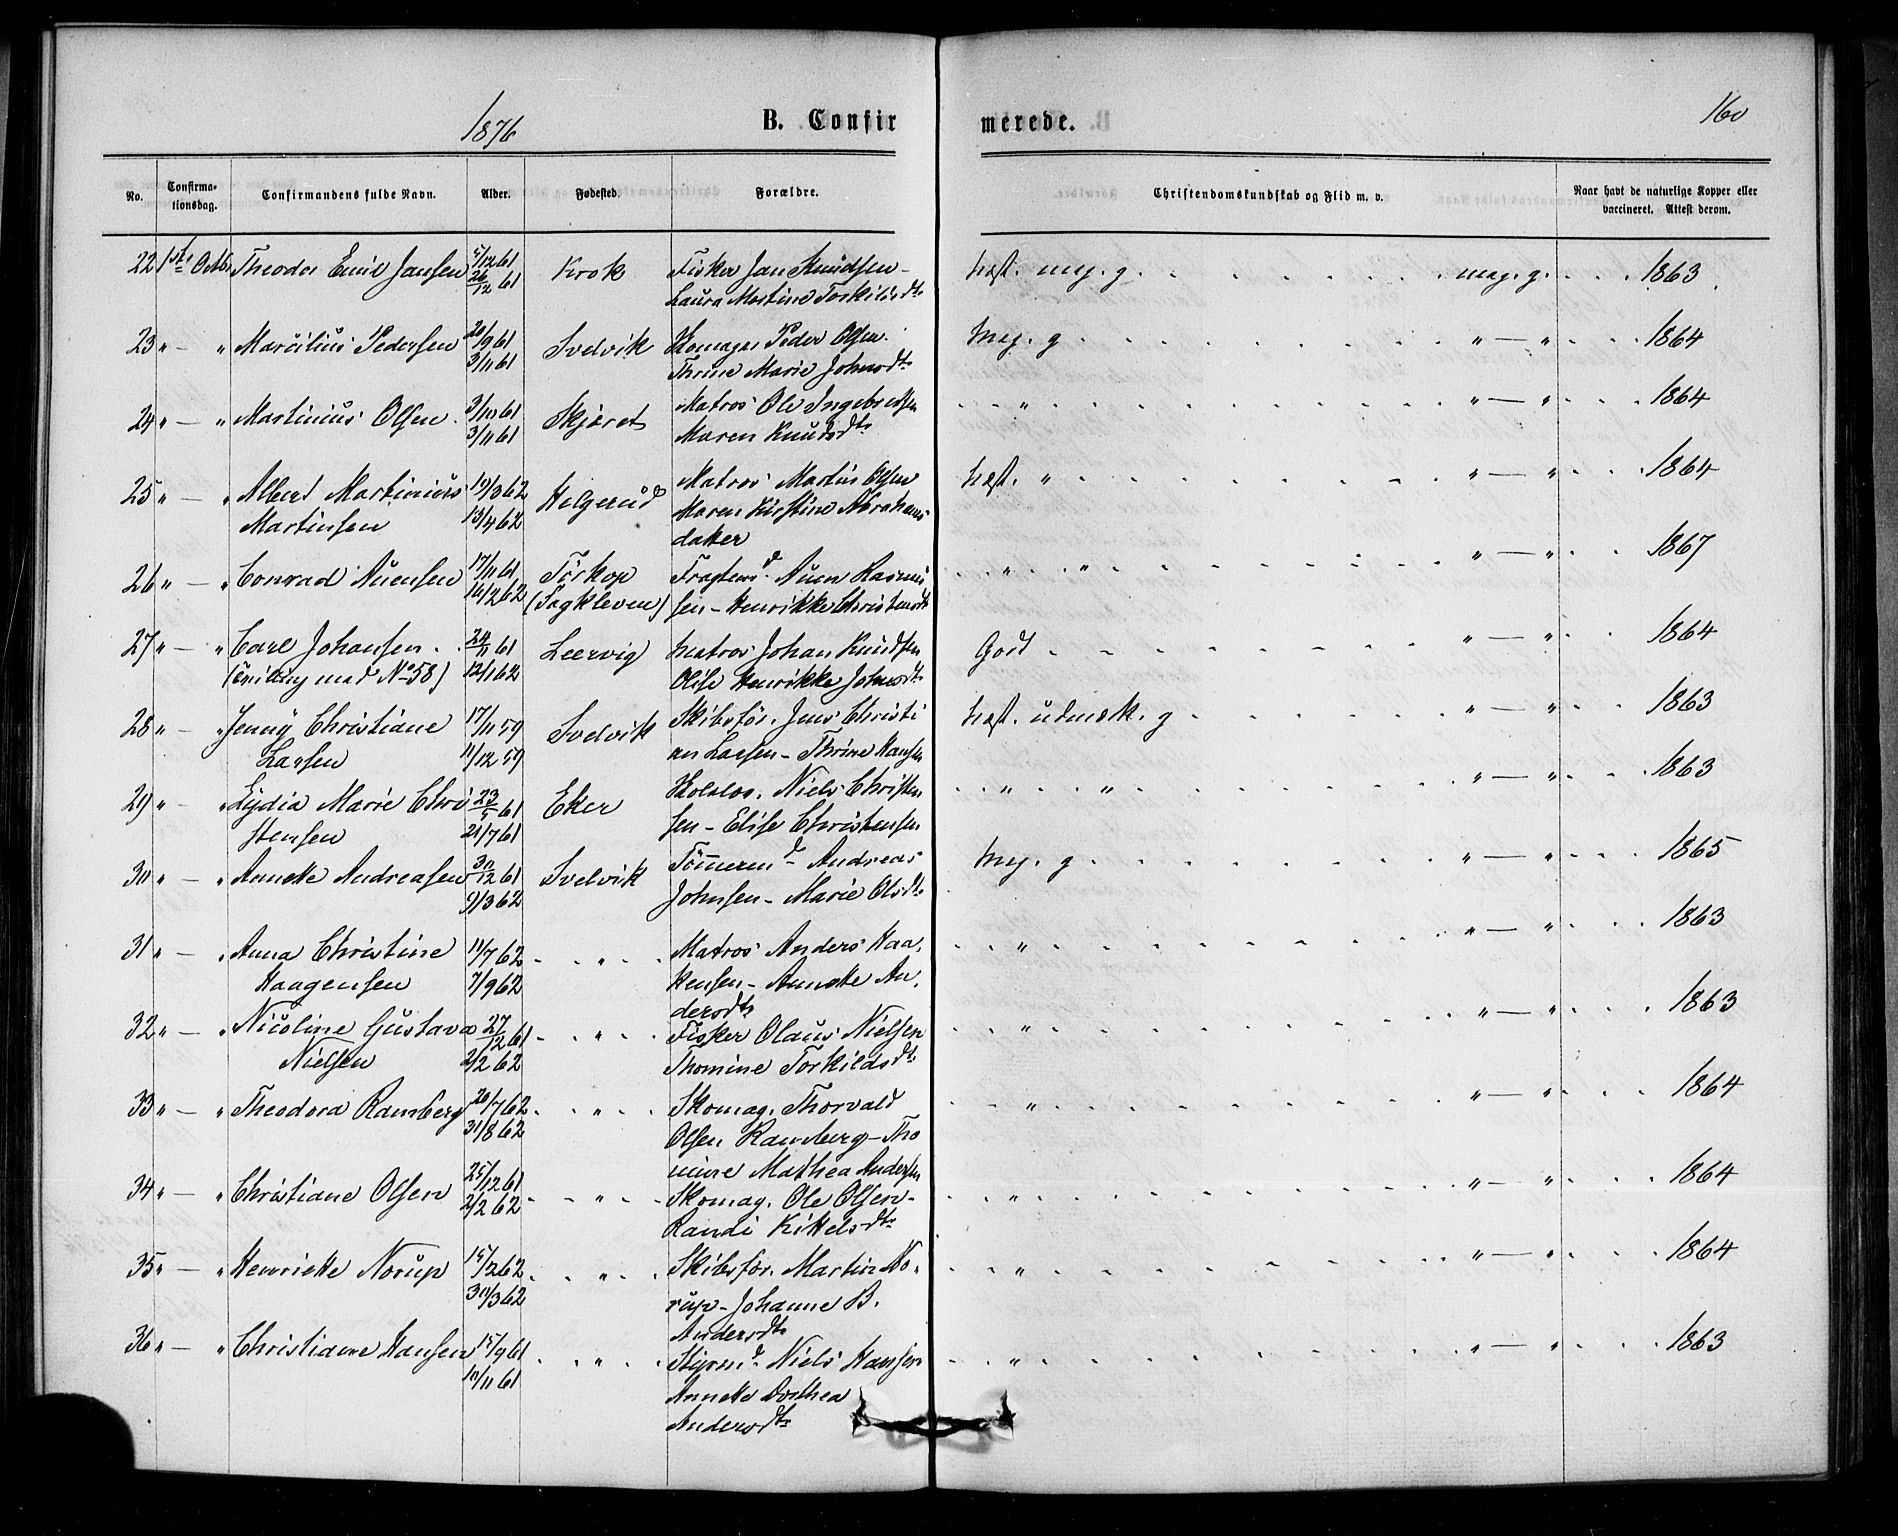 1876
B. Confirmerede.
160
No. Confirmationsdag. Confirmandens fulde Navn. Alder. Fødested. Forældre. Christendomskundskab og Flid m. v. Naar havt de naturlige Kopper eller vaccineret. Attest derom.
22 1ste Octbr Theodor Emil Jansen 5/12 61 26/12 61 Krok Fisker Jan Knudsen - Laura Martine Torkildsdtr næst. meg. g. meg. g. 1863
23 " — " Marcilius Pedersen 20/9 61 3/11 61 Svelvik Skomager Peder Olsen. Thrine Marie Johnsdtr Meg. g " — " 1864
24 " — " Martinius Olsen 3/10 61 3/11 61 Skjøret Matros Ole Ingebretsen Maren Knudsdtr " " — " 1864
25 " — " Albert Martinius Martinsen 19/3 62 13/4 62 Helgerud Matros Martin Olsen Maren Kirstine Abrahamsdatter næst. " " — " 1864
26 " — " Conrad Auensen 17/11 61 16/2 62 Tørkop (Sagkleven) Auen Rasmussen - Henrikke Christensdtr " " " — " 1867
27 " — " Carl Johansen (Tvilling med No 58) 24/11 61 12/1 62 Leervig Matros Johan Knudsen Olise Henrikke Johnsdtr Godt " — " 1864
28 " — " Jenny Christiane Larsen 17/11 59 11/12 59 Svelvik Skibsfør. Jens Christian Larsen - Thrine Hansen næst. udmærk. g " — " 1863
29 " — " Lydia Marie Christensen 23/5 61 21/7 61 Eker Skolelær. Niels Christensen - Elise Christensen " " " — " 1863
30 " — " Annette Andreasen 30/12 61 9/3 62 Svelvik Tømmermd Andreas Johnsen - Marie Olsdtr Meg. g " — " 1865
31 " — " Anna Christine Haagensen 11/7 62 7/9 62 " Matros Anders Haakensen - Annette Andersdtr " " — " 1863
32 " — " Nicoline Gustava Nielsen 27/12 61 2/2 62 " Fisker Olaus Nielsen Thomine Torkildsdtr " " — " 1863
33 " — " Theodora Ramberg 20/7 62 31/8 62 " Skomag. Thorvald Olsen Ramberg - Thomine Mathea Andersen " " — " 1864
34 " — " Christiane Olsen 25/12 61 2/2 62 " Skomag. Ole Olsen - Randi Kittelsdtr " " — " 1864
35 " — " Henriette Norup 15/2 62 30/3 62 " Skibsfør. Martin Norup - Johanne B. Andersdtr " " — " 1864
36 " — " Christiane Hansen 15/9 61 10/11 61 " Styrmd Niels Hansen Annette Dorthea Andersdtr " " — " 1863